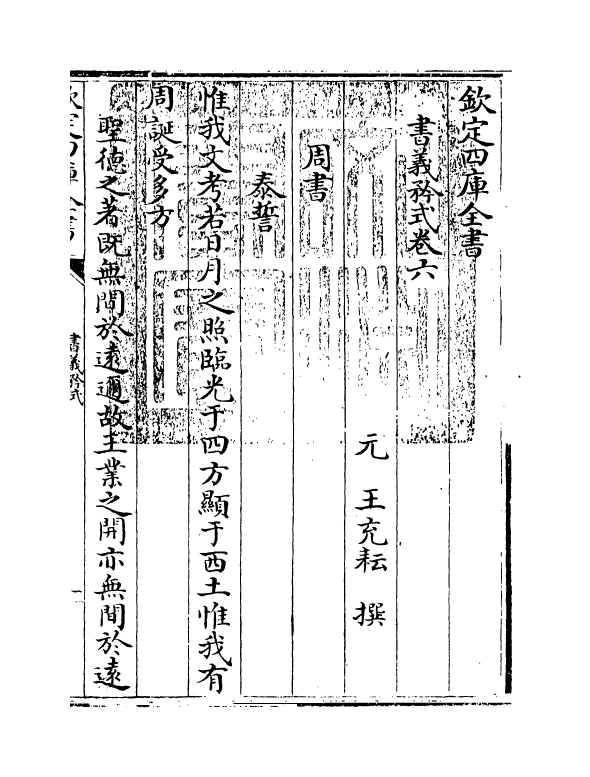 欽定四庫全書
書義矜式卷六
元 王充耘 撰
周書
泰誓
惟我文考若日月之照臨光于四方顯于西土惟我有
周誕受多方
聖德之著既無間於遠邇故王業之開亦無間於遠
欽定四庫全書
書義矜式
一